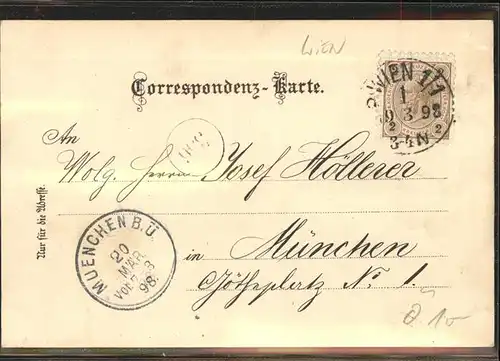 Wien
Correspondenz-Karte.
WIEN 1/1
1
9 3 98
2 2
3-4 N
An
Wolg. Herrn Josef Höllerer
in München
Götheplatz No. 1.
Nur für die Adresse.
MUENCHEN B.Ü.
20
MAR
98.